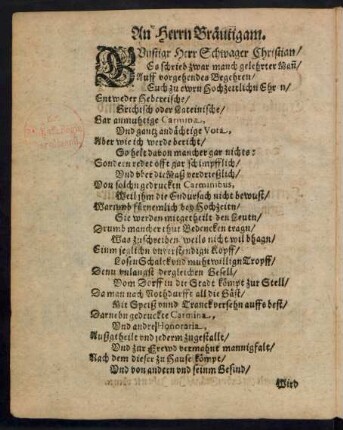 An Herrn Bräutigam.
Günstiger Herr Schwager Christian/
Es schrieb zwar manch gelehrter Mañ/
Auff vorgehendes Begehren/
Euch zu ewrn Hochzeitlichn Ehrn/
Entweder Hebreische/
Grichisch oder Lateinische/
Gar anmuhtige Carmina,
Und gantz andächtige Vota,
Aber wie ich werde bericht/
So helt davon mancher gar nichts:
Sondern redet offt gar schimpfflich/
Und über die Maß verdrießlich/
Von solchn gedruckten Carminibus,
Weil ihm die Endursach nicht bewust/
Warumb fürnemlich bey Hochzeiten/
Sie werden mitgetheilt den Leutn/
Drumb mancher thut Bedencken tragn/
Was zuschreiben/ weils nicht wil bhagn/
Einm jeglichn unverstendign Kopff/
Losen Schalck und muhtwillign Tropff/
Denn unlangst dergleichen Gesell/
Vom Dorff in die Stadt kömpt zur Stell/
Da man nach Nothdurfft all die Gäst/
Mit Speiß und Tranck versehn auffs best/
Darneben gedruckte Carmina,
Und andre Honoraria,
Außgetheilt und jederm zugestallt/
Und zur Frewd vermahnt mannigfalt/
Nach dem dieser zu Hause kömpt/
Und von andern und seinm Gesind/
Wird